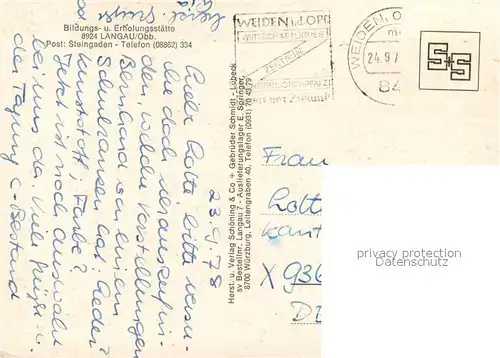 Bildungs- u. Erholungsstätte
8924 LANGAU/Obb.
Post: Steingaden - Telefon (08862) 334
23.9.78
Liebe Lotte, bitte versu-
che doch herauszufin-
den, welche Vorstellungen
Bernhard von einem
Schulranzen hat: Leder?
Kunststoff; Farbe?
Jetzt ist noch Auswahl
bei uns da. Viele Grüße v.
der Tagung
Herst. u. Verlag Schöning & Co + Gebrüder Schmidt - Lübeck
sv Bestellnr. Langau 7 - Auslieferungslager E. Springer,
8700 Würzburg, Leitengraben 40, Telefon (0931) 70 43 79
WEIDEN i.d.OPF
WIRTSCHAFTLICHES
ZENTRUM
WEIDEN, O
24.9.7
84
S+S
Frau
Lott
Kant
X 936
privacy protection
oldthing.com